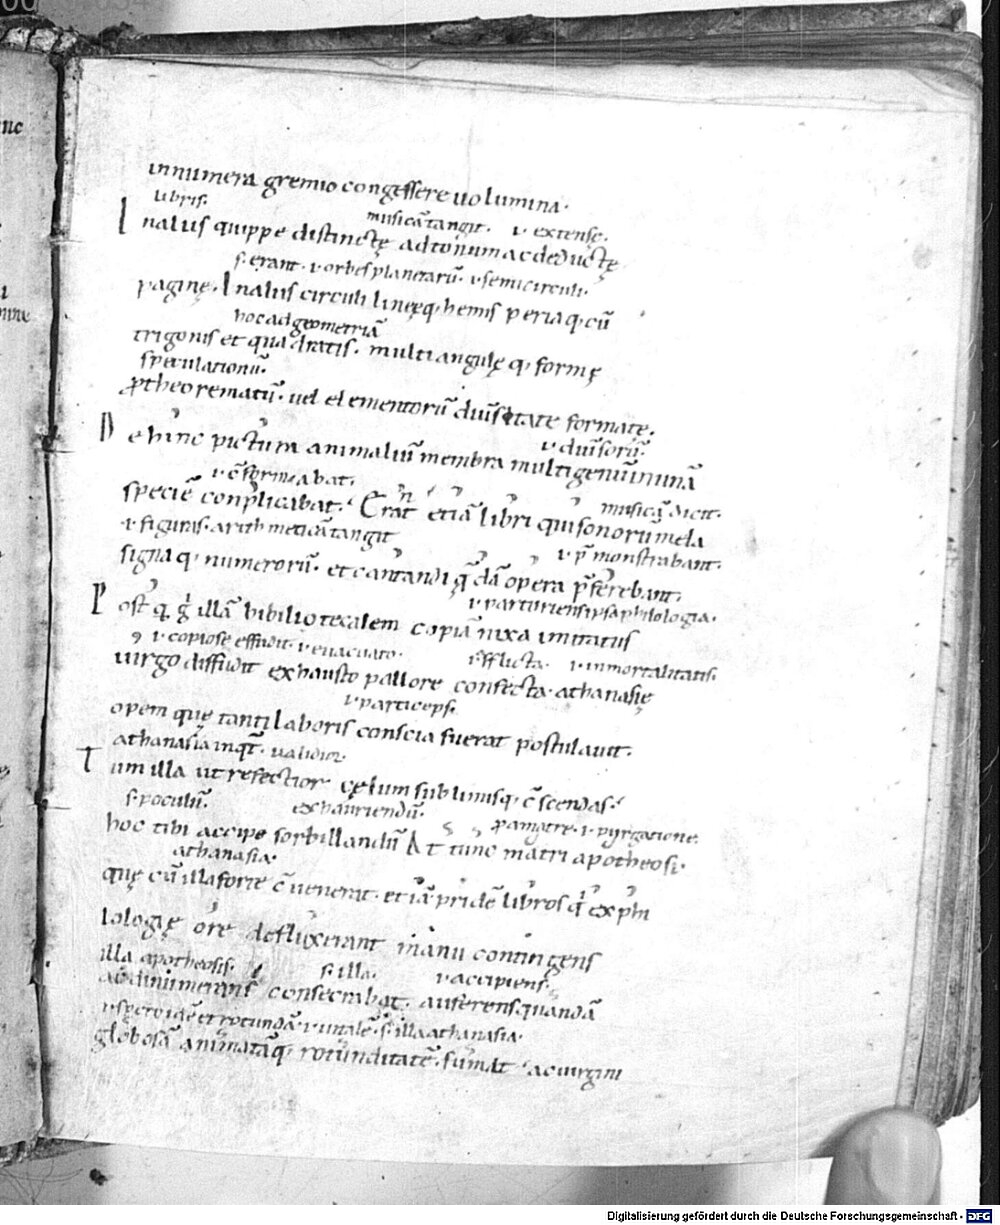 innumera gremio congessere uolumina.
libris. musicā tangit. ł extensę.
In aliis quippe distinctę ad tonum ac deductę
s. erant. ł orbes planetarū. ł semicirculi.
paginę. In aliis circuli lineęq; hemisperiaq; cū
hoc ad geometriā
trigonis et quadratis. multiangulęq; formę
speculationū.
ꝓ theorematū. uel elementorū diuersitate formatę.
ł diuersorū.
Dehinc pictura animaliū membra multigenūm in unā
ł c̄formabat. musicā dicit.
speciē conplicabat. Erāt etiā libri qui sonorū mela
ł figuras. arithmeticā tangit ł p̄monstrabant.
signaq; numerorū. et cantandi q̄dā opera p̄ferebant.
ł parturiens ipsa philologia.
Postq̄ gͥ illā bibliotecalem copiā nixa imitatus
ł copiose effudit. ł euacuato. ł efflicta. ł inmortalitatis.
uirgo diffudit exhausto pallore confecta. athanasię
ł particeps.
opem quę tanti laboris conscia fuerat postulauit.
athanasia inqͥt. ualidior.
Tum illa ut refectior cęlum sublimisq; c̄scendas.
s. poculū. exhauriendū. ꝓ a matre. ł purgatione.
hoc tibi accipe sorbillandū At tunc matri apotheosi.
athanasia.
quę cū illa forte c̄uenerat. et iā pridē libros qͥ ex phi
lologię ore defluxerant manu contingens
illa apotheosis. s. illa. ł accipiens.
ac dinumerans consecrabat. auferens quandā
ł speroidē et rotundā. ł uitale. s. illa athanasia.
globosā animatāq; rotunditatē. sumit ac uirgini
Digitalisierung gefördert durch die Deutsche Forschungsgemeinschaft - DFG